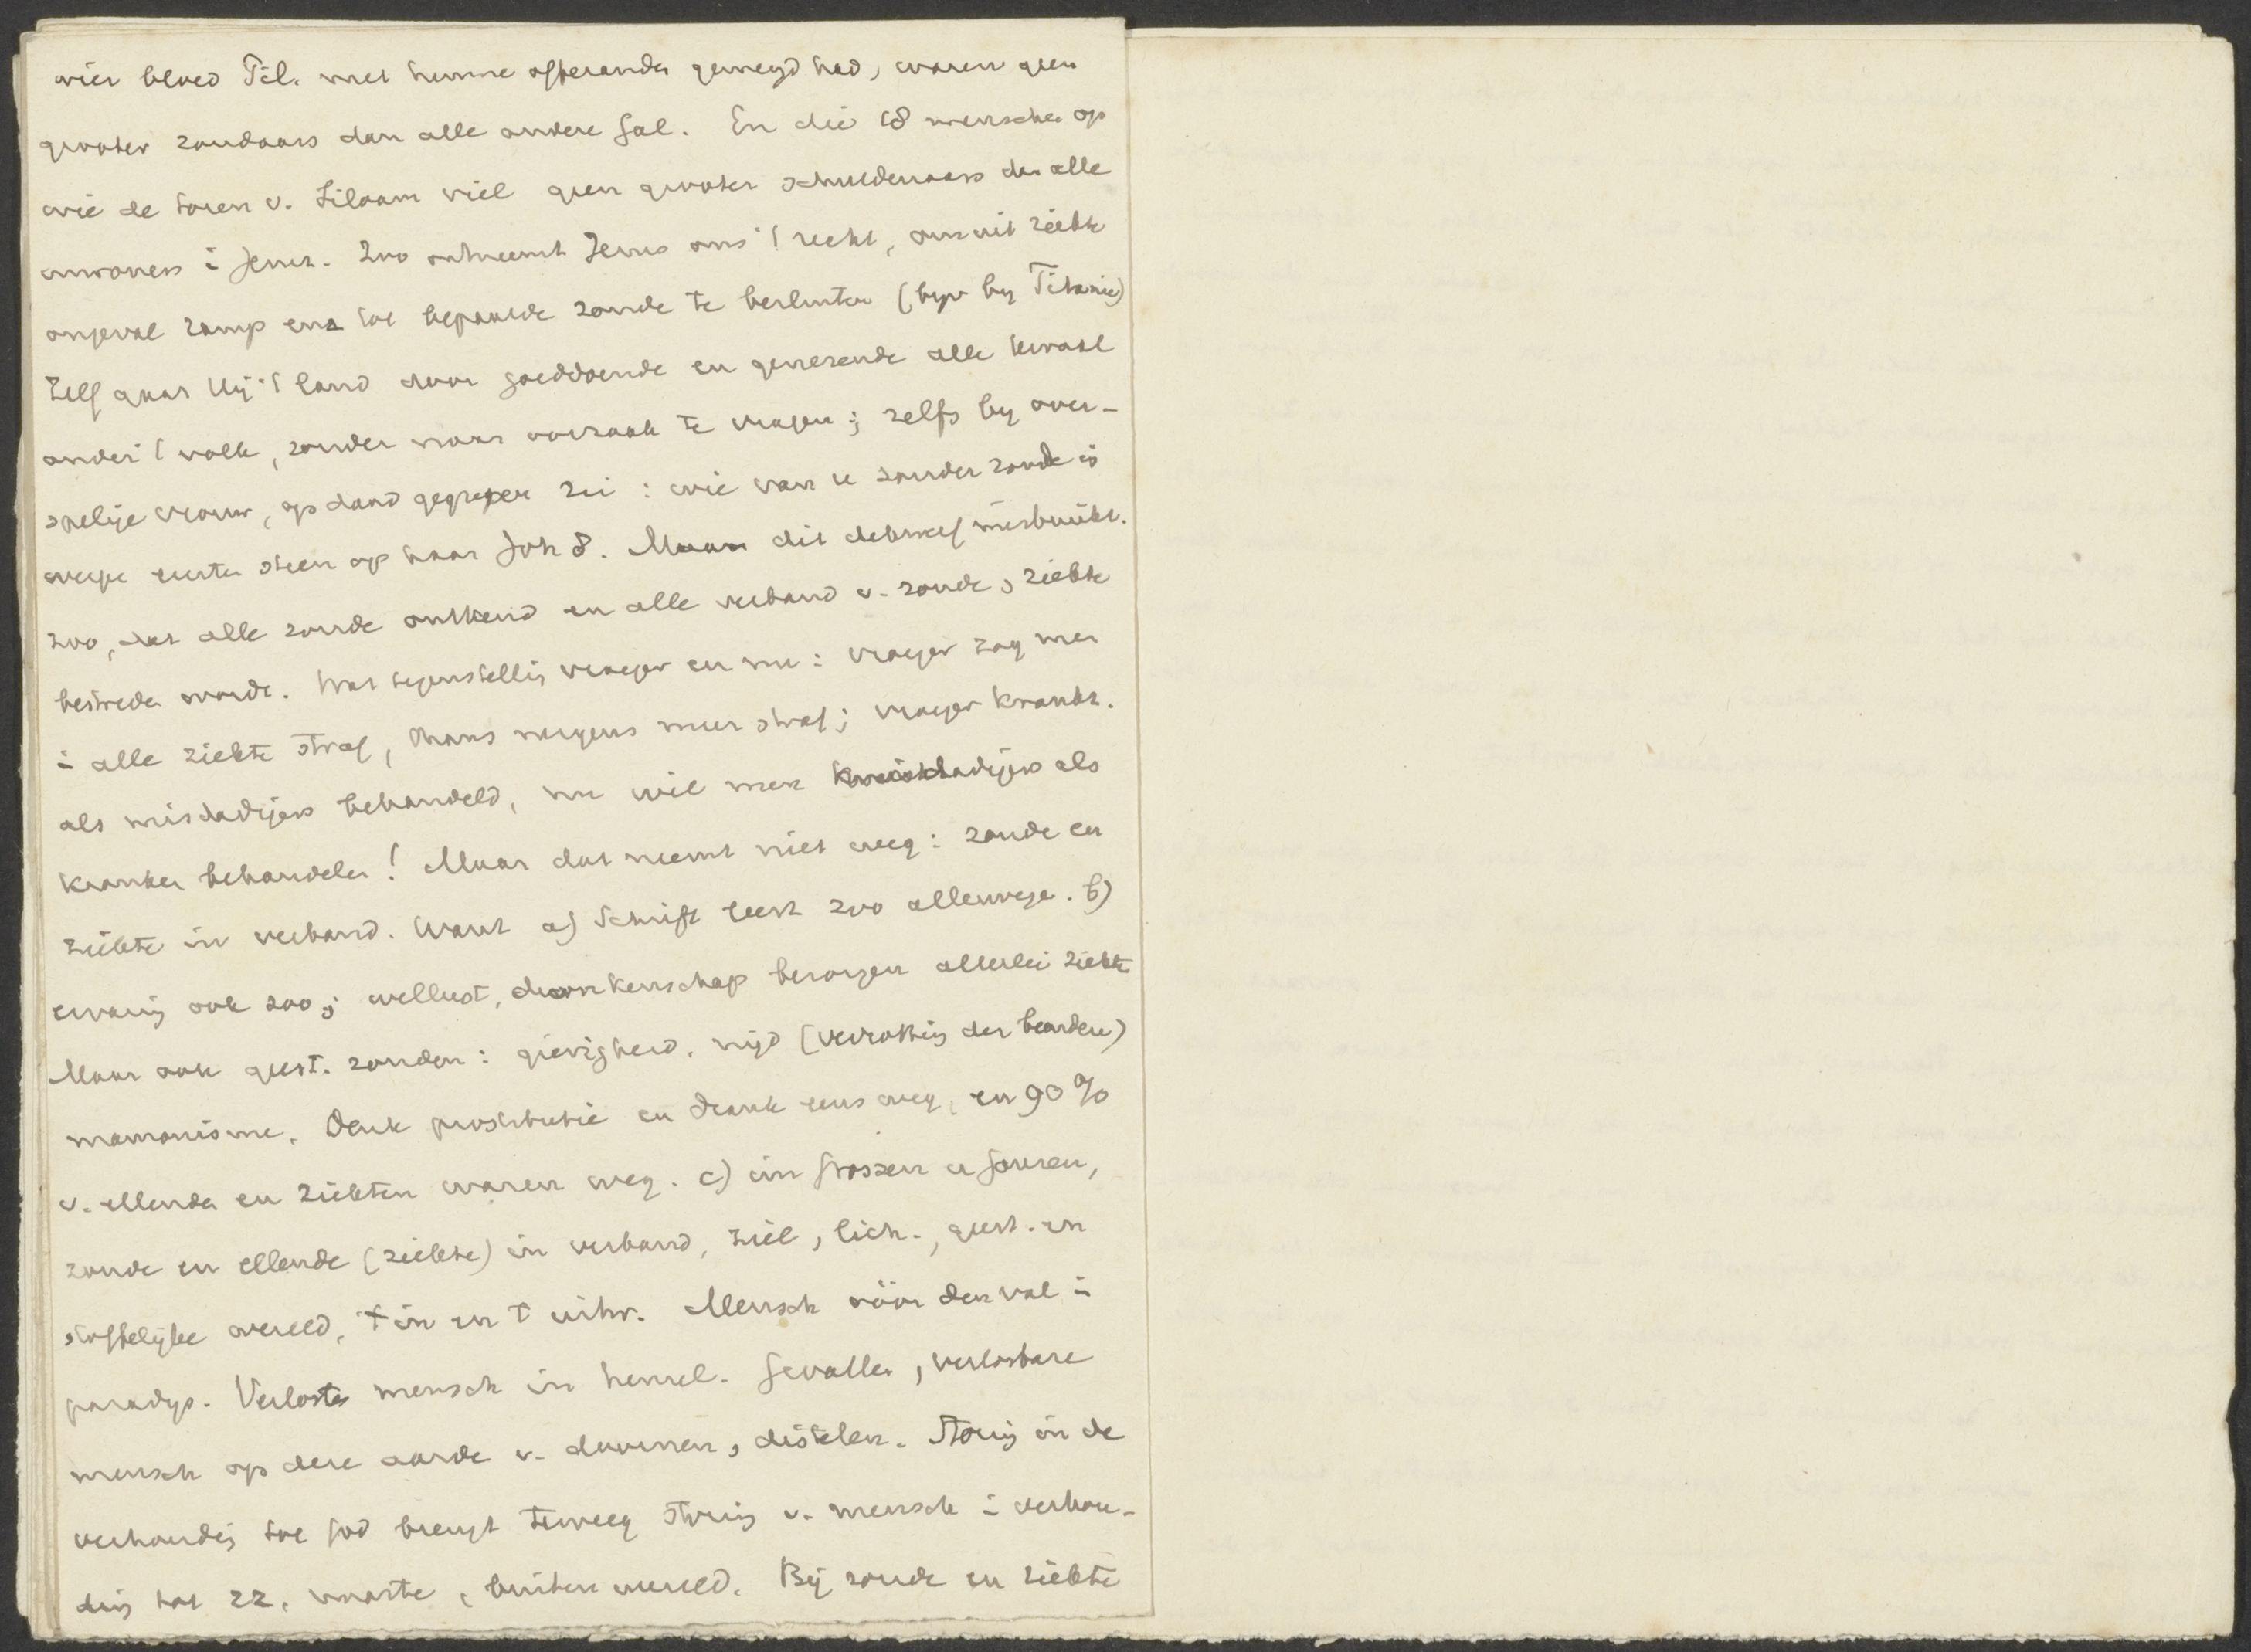 wier bloed Pil. met hunne offeranden gemengd had, waren geen
grooter zondaars dan alle andere Gal. En die 18 menschen op
wie de toren v. Siloam viel geen grooter schuldenaars dan alle
inwoners i Jeruz. Zoo ontneemt Jezus ons 't recht, om uit ziekte
ongeval ramp enz tot bepaalde zonde te besluiten (bijv bij Titanic)
Zelf gaat Hij 't land door goeddoende en genezende alle kwaal
onder 't volk, zonder naar oorzaak te vragen; zelfs bij over-
spelige vrouw, op daad gegrepen zei: wie van u zonder zonde is
werpe eersten steen op haar Joh 8. Maar dit dikwerf misbruikt.
zoo, dat alle zonde ontkend en alle verband v. zonde, ziekte
bestreden wordt. Wat tegenstelling vroeger en nu: vroeger zag men
i alle ziekte straf, thans nergens meer straf; vroeger krankz.
als misdadigers behandeld, nu wil men misdadigers als
kranken behandelen! Maar dat neemt niet weg: zonde en
ziekte in verband. Want a) Schrift leert zoo allerwege. b)
ervaring ook zoo; wellust, dronkenschap bezorgen allerlei ziekte
Maar ook geest. zonden: gierigheid, nijd (verrotting der beenderen)
mamonisme. Denk prostitutie en drank eens weg, en 90%
v. ellenden en ziekten waren weg. c) im grossen u ganzen,
zonde en ellende (ziekte) in verband, ziel, lich., geest. en
stoffelijke wereld, 't in en 't uitw. Mensch vóór den val i
paradijs. Verloste mensch in hemel. Gevallen, verlosbare
mensch op deze aarde v. doornen, distelen. Storing in de
verhouding tot God brengt teweeg storing v. mensch i verhou-
ding tot zz. naaste, buitenwereld. Bij zonde en ziekte